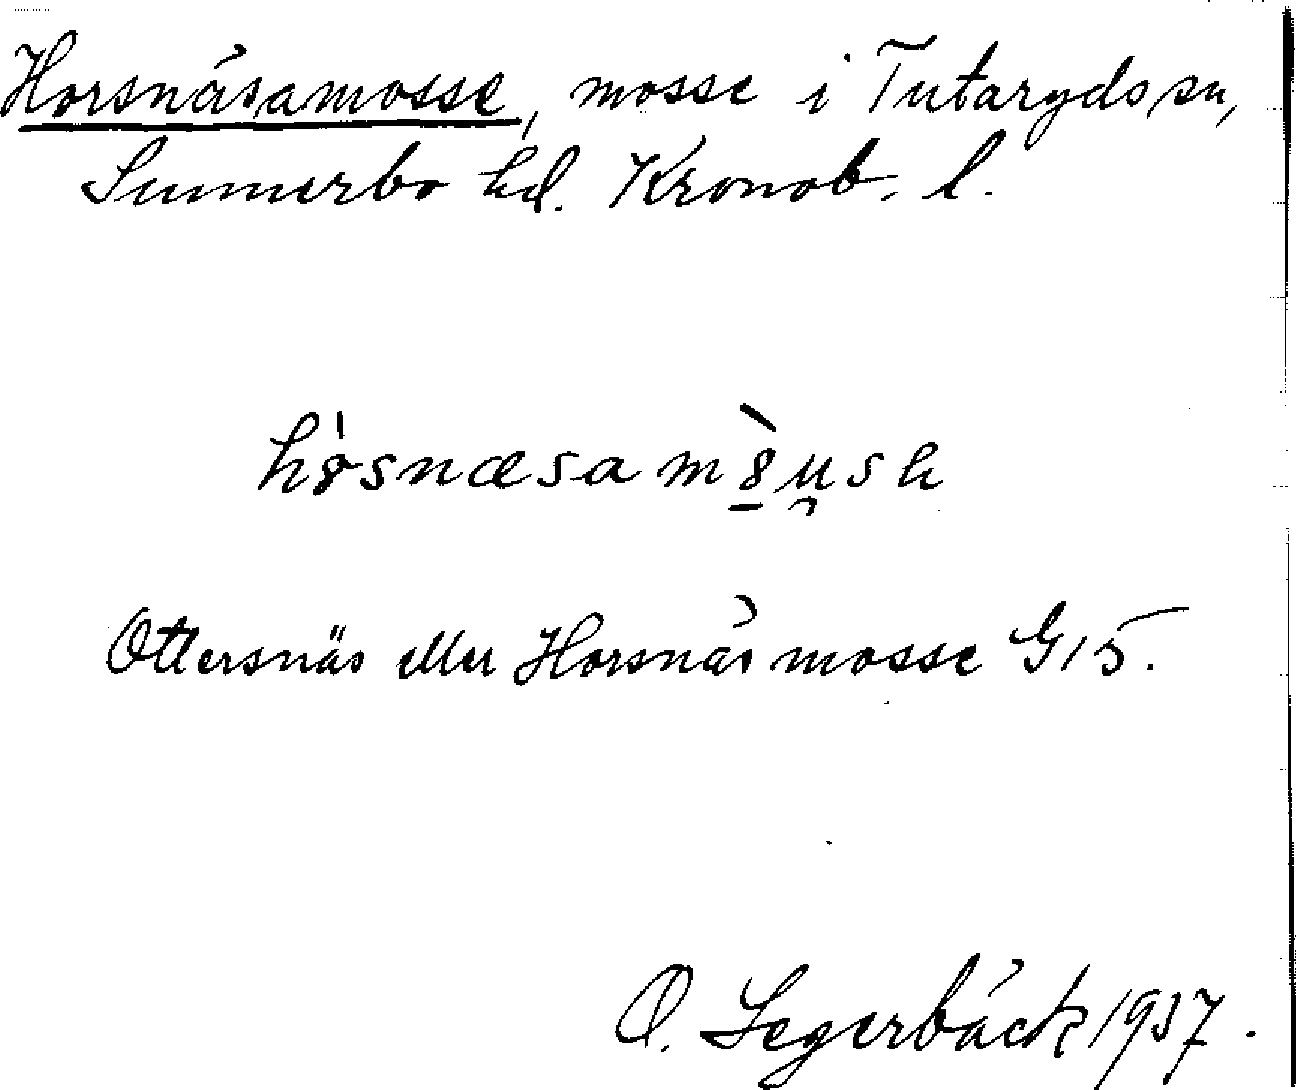 Horsnäsamosse, mosse i Tutaryds sn,
Sunnerbo hd. Kronob. l.
hòsnæsamòu̯sh
Ottersnäs eller Horsnäs mosse G15.
O. Segerbäck 1937.